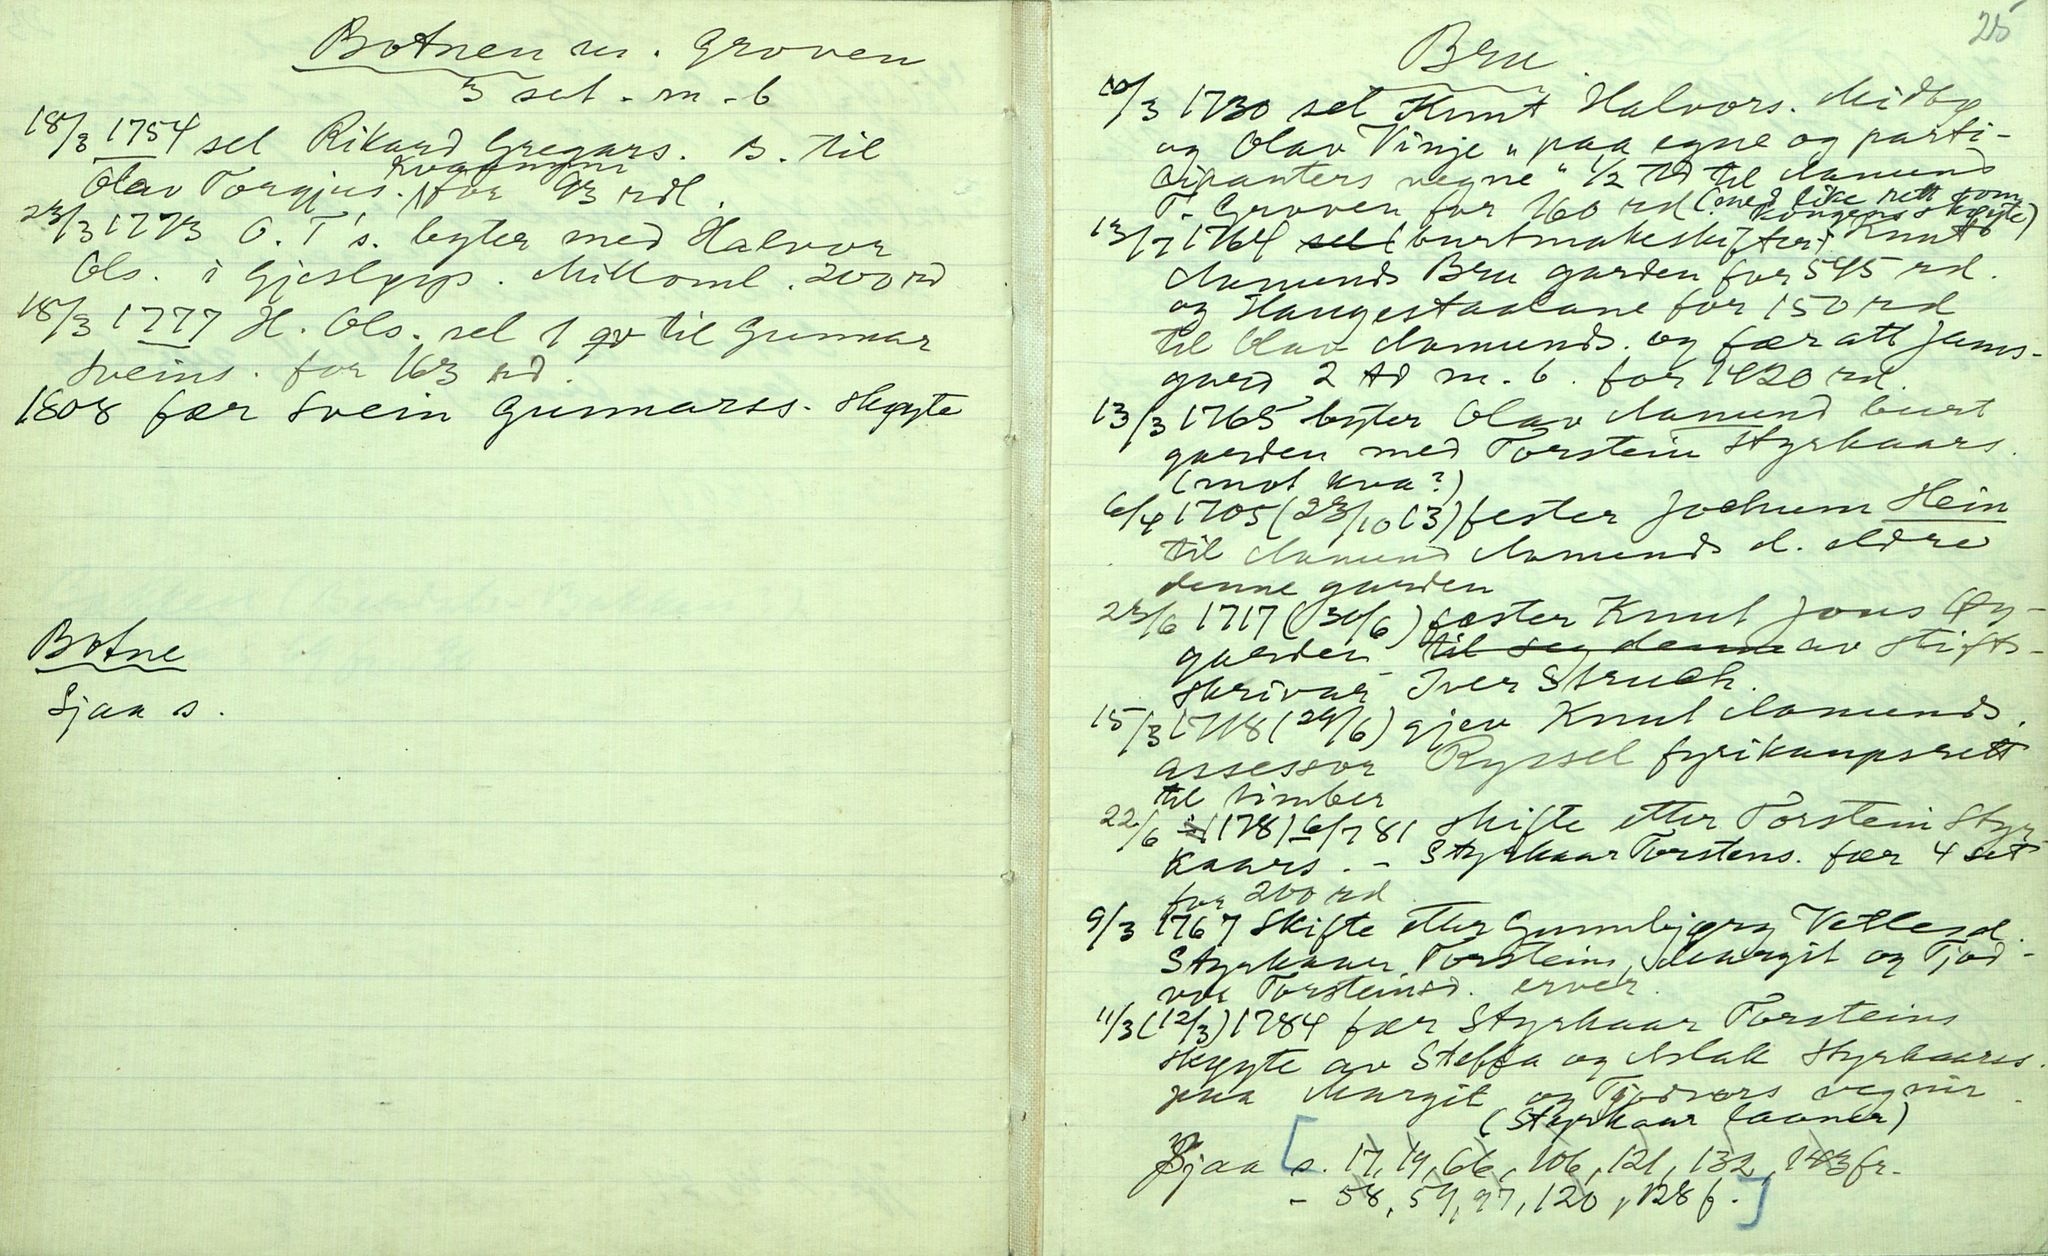 Botnen m. Groven
3 set. m. b
18/3 1754 sel Rikard Gregars. B. til
Kvaamann
Olav Torgjus. for 93 rdl.
23/3 1773 O. T's. byter med Halvor
Ols. i Gjeslgyp. Milloml. 200 rd
18/3 1777 H. Ols. sel 1 gv til Gunnar
Sveins. for 163 rd.
1808 fær Svein Gunnarss. skøyte
Botne
Sjaa s.
25
Bru
10/3 1730 sel Knut Halvors. Midbø
og Olav Vinje „paa egne og parti-
cipanters vegne“ 1/2 td til Aamund
T. Groven for 160 rd. (med like rett som
kongens skøyte)
13/7 1764 sel (burtmakeskifter) Knut
Aamunds Bru garden for 595 rd.
og Haugestaalane for 150 rd
til Olav Aamunds. og fær att Jams-
gard 2 td m. b. for 1420 rd.
13/3 1765 byter Olav Aamund burt
garden med Torstein Styrkaars.
(mot kva?)
6/4 1705 (23/10 13) fester Jochum Hein
til Aamund Aamunds d. eldre
denne garden
23/6 1717 (30/6) fæster Knut Jons Øy-
garden til seg denne av stifts-
skrivar Iver Struch.
15/3 1718 (24/6) gjev Knut Aamunds.
assessor Ryssel fyrikaupsrett
til timber
22/6 (178) 6/7 81 skifte etter Torstein Styr-
kaars. - Styrkaar Torstens. fær 4 set
for 200 rd
9/3 1767 Skifte etter Gunnbjørg Vetlesd.
Styrkaar Torsteins, Margit og Tjod-
vor Torsteinsd. erver.
11/3 (12/3) 1784 fær Styrkaar Torsteins
skøyte av Steffa og Aslak Styrkaars.
paa Margit og Tjodvors vegnir.
(Styrkaar laaner)
Sjaa [s. 17, 19, 66, 106, 121, 132, 143 fr.
- 58, 59, 97, 120, 128 f.]